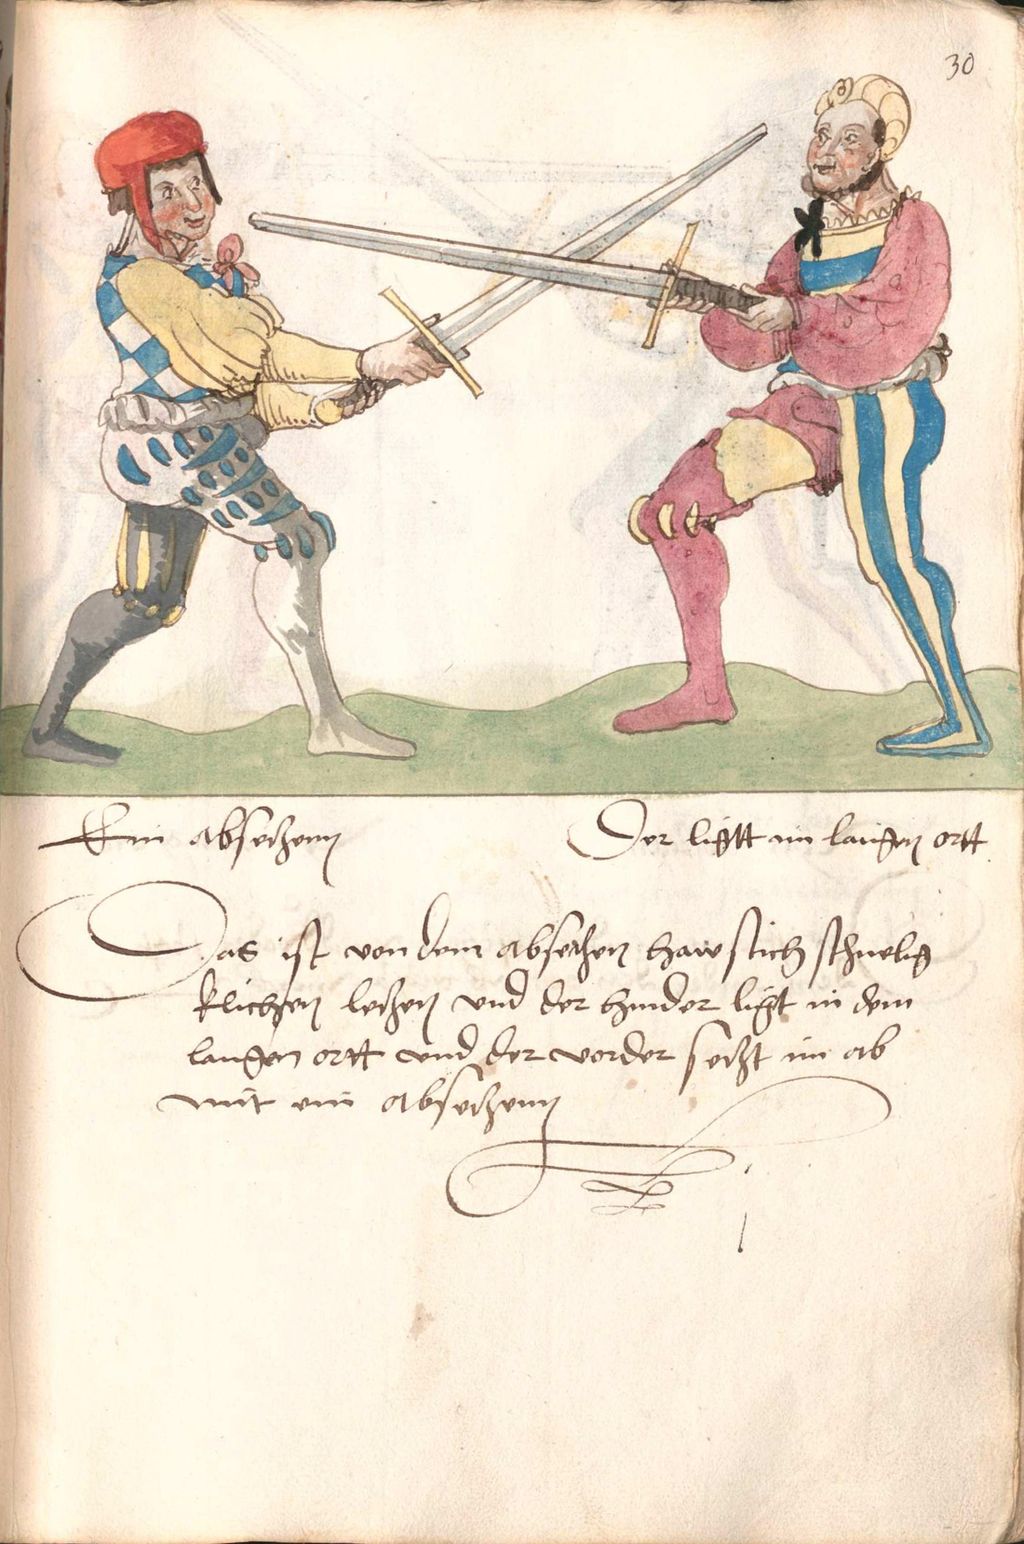 30
Ein absetzenn
Der ligtt im langen ortt
Das ist von dem absetzen haw stich schnelig
klichen letzen und der hinder ligt in dem
langen ortt und der vorder setzt im ab
mit ein absetzenn